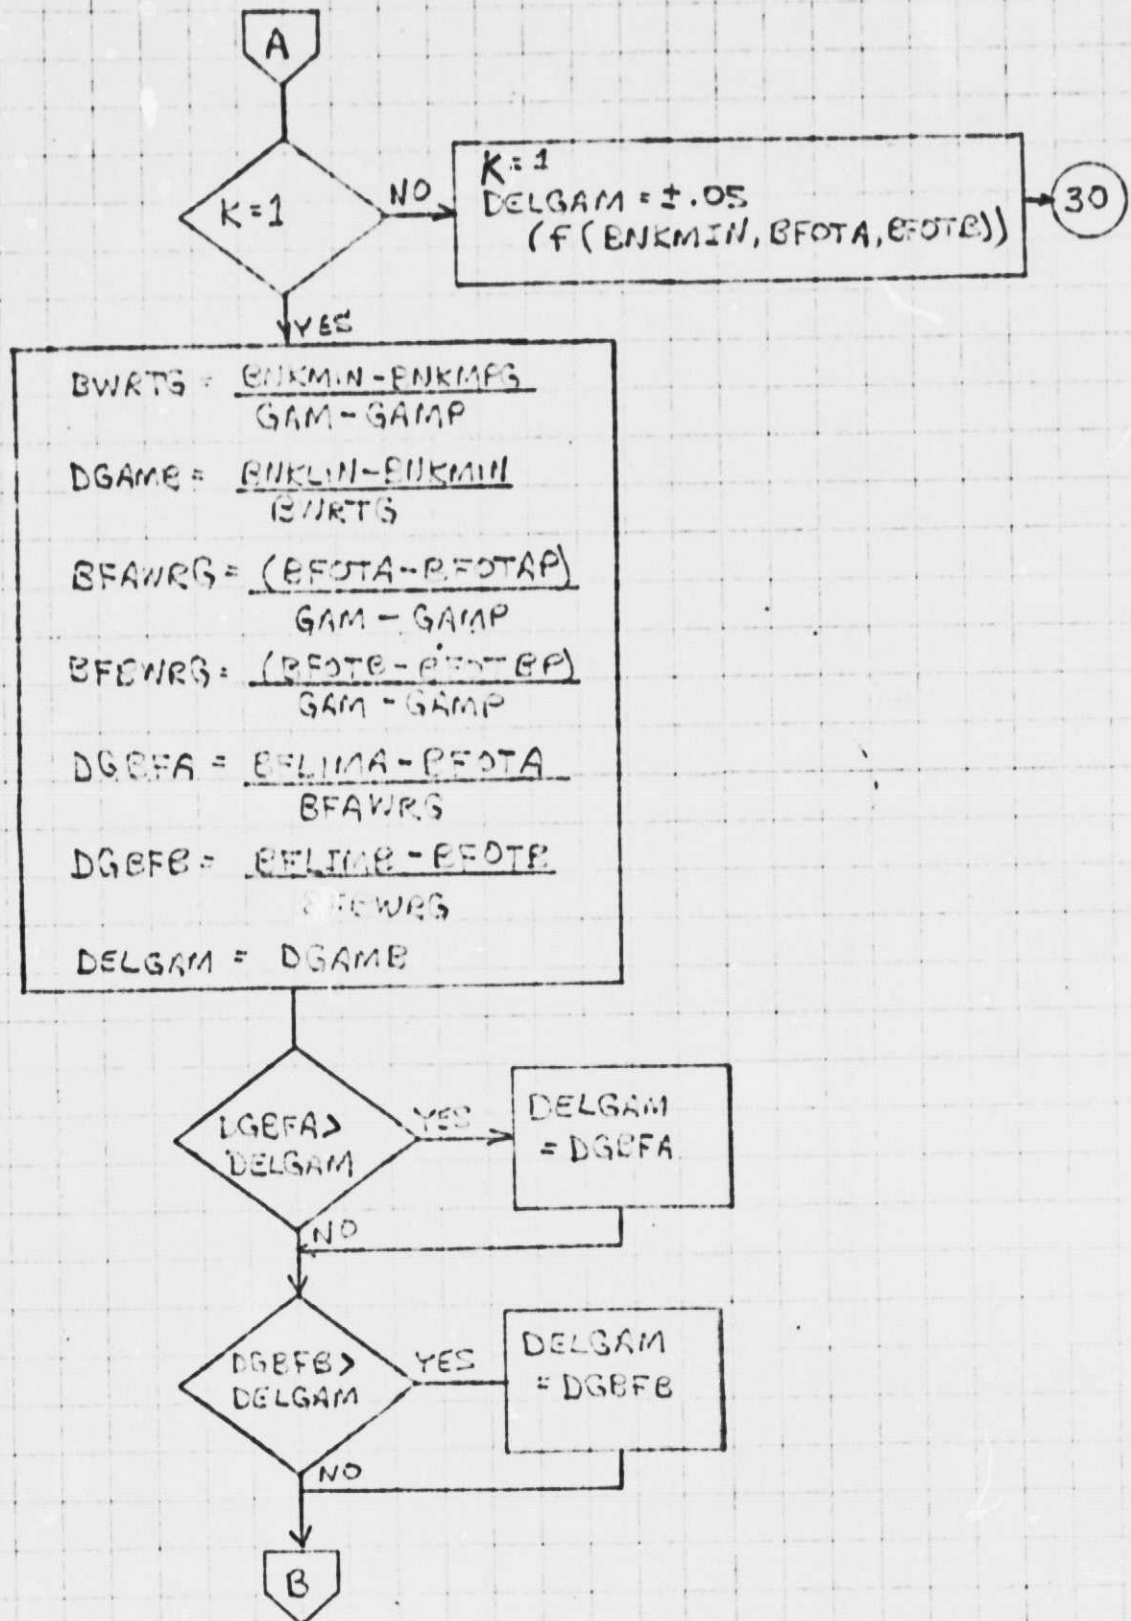 A
K=1
NO
K=1
DELGAM = ±.05
(f(BNKMIN, BFOTA, BFOTB))
30
YES
BWRTG = BNKMIN-BNKMPG
GAM-GAMP
DGAMB = BNKLIN-BNKMIN
BWRTG
BFAWRG = (BFOTA-BFOTAP)
GAM-GAMP
BFBWRG = (BFOTB-BFOTBP)
GAM-GAMP
DGBFA = BFLIMA-BFOTA
BFAWRG
DGBFB = BFLIMB-BFOTB
BFBWRG
DELGAM = DGAMB
DGBFA>
DELGAM
YES
DELGAM
= DGBFA
NO
DGBFB>
DELGAM
YES
DELGAM
= DGBFB
NO
B